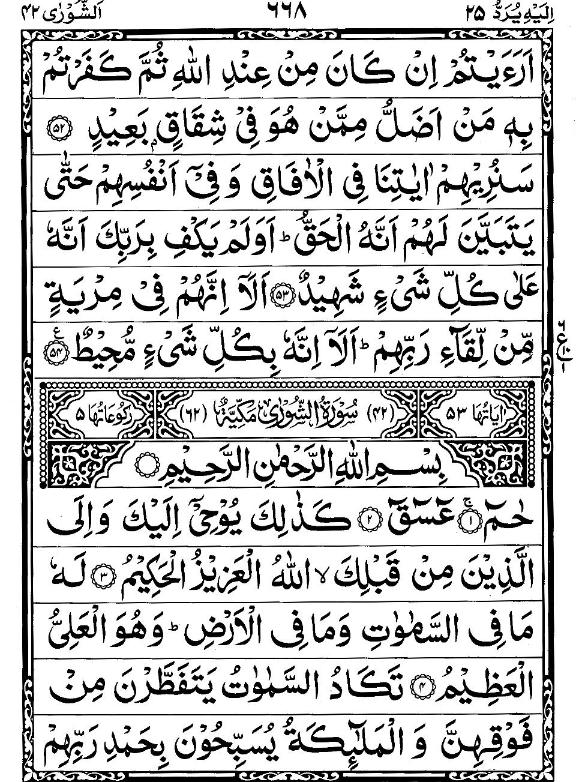 اِلَیْهِ یُرَدُّ ۲۵ ۶۶۸ اَلشُّوْرٰی ۴۲
اَرَءَیْتُمْ اِنْ كَانَ مِنْ عِنْدِ اللّٰهِ ثُمَّ كَفَرْتُمْ
بِهٖ مَنْ اَضَلُّ مِمَّنْ هُوَ فِیْ شِقَاقٍۭ بَعِیْدٍ ۝۵۲
سَنُرِیْهِمْ اٰیٰتِنَا فِی الْاٰفَاقِ وَ فِیْۤ اَنْفُسِهِمْ حَتّٰی
یَتَبَیَّنَ لَهُمْ اَنَّهُ الْحَقُّ ؕ اَوَلَمْ یَكْفِ بِرَبِّكَ اَنَّهٗ
عَلٰی كُلِّ شَیْءٍ شَهِیْدٌ ۝۵۳ اَلَاۤ اِنَّهُمْ فِیْ مِرْیَةٍ
مِّنْ لِّقَآءِ رَبِّهِمْ ؕ اَلَاۤ اِنَّهٗ بِكُلِّ شَیْءٍ مُّحِیْطٌ ۝۵۴
اٰیَاتُهَا ۵۳ (۴۲) سُوْرَةُ الشُّوْرٰی مَكِّیَّةٌ (۶۲) رُكُوْعَاتُهَا ۵
بِسْمِ اللّٰهِ الرَّحْمٰنِ الرَّحِیْمِ ۝
حٰمٓ ۝۱ۚ عٓسٓقٓ ۝۲ كَذٰلِكَ یُوْحِیْۤ اِلَیْكَ وَ اِلَی
الَّذِیْنَ مِنْ قَبْلِكَ ۙ اللّٰهُ الْعَزِیْزُ الْحَكِیْمُ ۝۳ لَهٗ
مَا فِی السَّمٰوٰتِ وَ مَا فِی الْاَرْضِ ؕ وَ هُوَ الْعَلِیُّ
الْعَظِیْمُ ۝۴ تَكَادُ السَّمٰوٰتُ یَتَفَطَّرْنَ مِنْ
فَوْقِهِنَّ وَ الْمَلٰٓىِٕكَةُ یُسَبِّحُوْنَ بِحَمْدِ رَبِّهِمْ